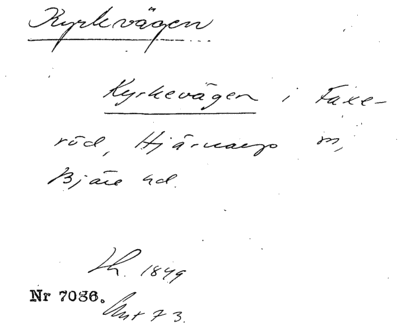 Kyrkvägen
Kyrkevägen i Faxe-
röd, Hjärnarp
Bjäre hd.
1849
Nr 7086.
73.